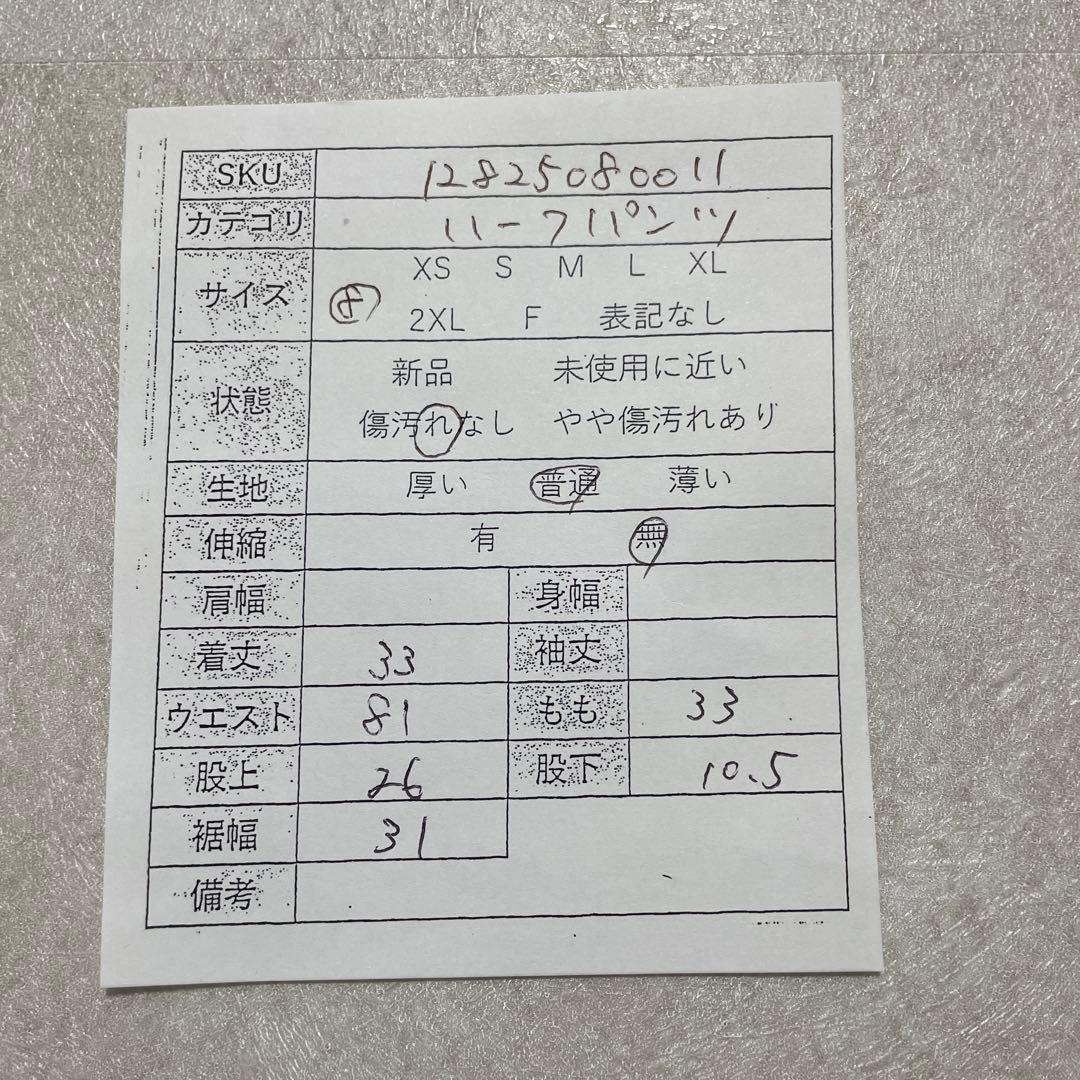 SKU 12825080011
カテゴリ ハーフパンツ
サイズ XS S M L XL
8 2XL F 表記なし
状態 新品 未使用に近い
傷汚れなし やや傷汚れあり
生地 厚い 普通 薄い
伸縮 有 無
肩幅 身幅
着丈 33 袖丈
ウエスト 81 もも 33
股上 26 股下 10.5
裾幅 31
備考